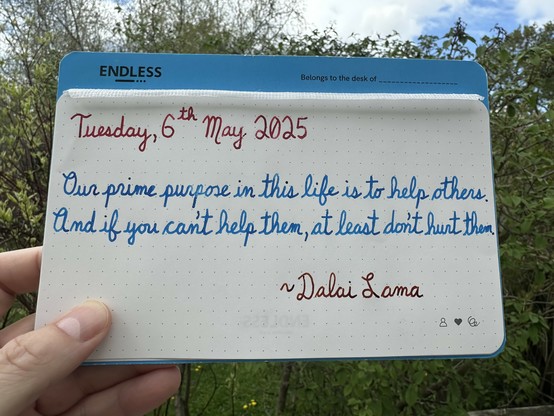 ENDLESS
Belongs to the desk of
Tuesday, 6th May 2025
Our prime purpose in this life is to help others.
And if you can't help them, at least don't hurt them.
~Dalai Lama